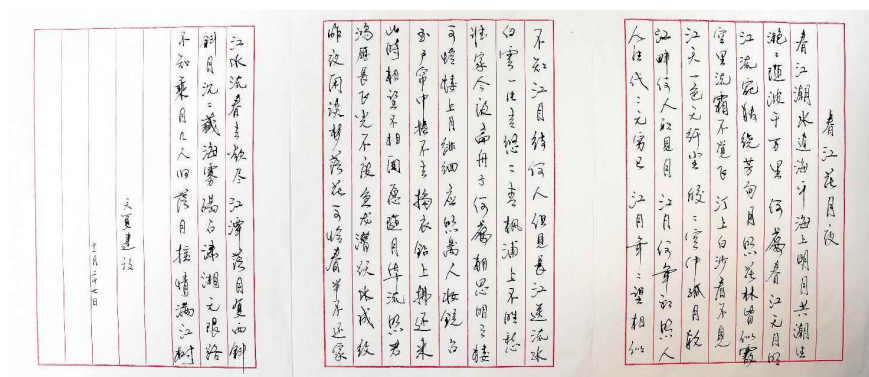 春江花月夜
春江潮水連海平海上明月共潮生
滟〻随波千万里 何處春江无月明
江流宛转绕芳甸月照花林皆似霰
空里流霜不觉飞 汀上白沙看不见
江天一色无纤尘 皎〻空中孤月轮
江畔何人初见月 江月何年初照人
人生代〻无穷已 江月年〻望相似
不知江月待何人但见長江送流水
白雲一片去悠〻青枫浦上不胜愁
谁家今夜扁舟子何處相思明月楼
可怜楼上月徘徊应照离人妆镜台
玉户帘中卷不去捣衣砧上拂还来
此時相望不相闻愿随月华流照君
鸿雁長飞光不度鱼龙潜跃水成纹
昨夜闲潭梦落花可怜春半不还家
江水流春去欲尽 江潭落月复西斜
斜月沉〻藏海雾碣石潇湘无限路
不知乘月几人归落月摇情满江树
十一月二十七日